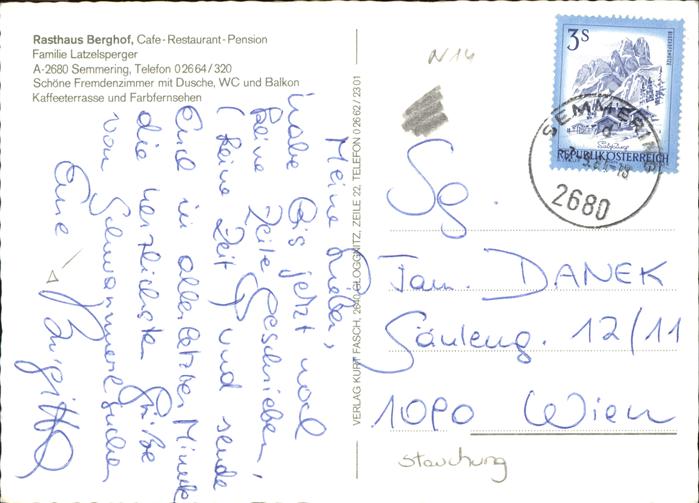 Rasthaus Berghof, Cafe-Restaurant-Pension
Familie Latzelsperger
A-2680 Semmering, Telefon 02664/320
Schöne Fremdenzimmer mit Dusche, WC und Balkon
Kaffeeterrasse und Farbfernsehen
N14
3 S
REPUBLIK ÖSTERREICH
SEMMERING
2680
VERLAG KURT FASCH, 2640 GLOGGNITZ, ZEILE 22, TELEFON 02662/2301
Meine Lieben,
habe bis jetzt noch
keine Zeile geschrieben,
(keine Zeit!) und sende
Euch in allerletzter Minute
die herzlichsten Grüße
vom Schwammerlsuchen
Eure
Brigitte
Sg.
Fam. DANEK
Säuleng. 12/11
1090 Wien
Stauchung